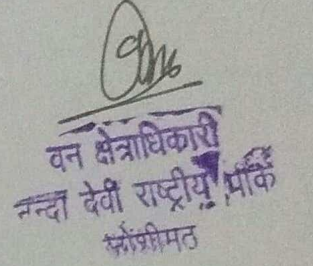 वन क्षेत्राधिकारी
नन्दा देवी राष्ट्रीय पार्क
जोशीमठ